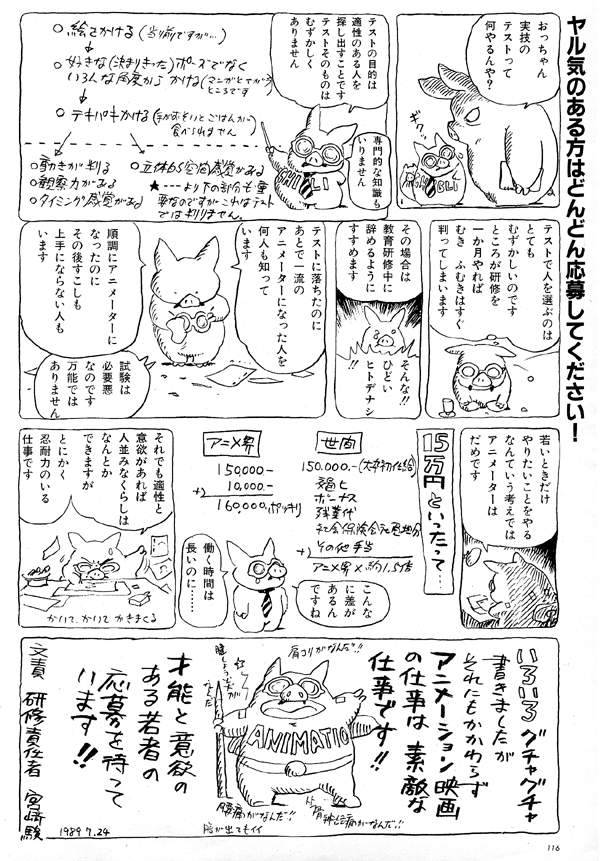 ヤル気のある方はどんどん応募してください！
おっちゃん
実技の
テストって
何やるんや？
ギクッ
テストの目的は
適性のある人を
探し出すことです
テストそのものは
むずかしく
ありません
専門的な知識も
いりません
○絵をかける(当り前ですが…)
○好きな(決まりきった)ポーズでなく
いろんな角度からかける
○テキパキかける(手がおそいとごはんが
食べられません
○動きが判る
○観察力がある
○タイミング感覚がある
○立体的空間感覚がある
★---より下の部分も重
要なのですがこれはテスト
では判りません。
テストで人を選ぶのは
とても
むずかしいのです
ところが研修を
一か月やれば
むき ふむきはすぐ
判ってしまいます
その場合は
教育研修中に
辞めるように
すすめます
そんな!!
ひどい
ヒトデナシ
!!
テストに落ちたのに
あとで一流の
アニメーターになった人を
何人も知って
います
順調にアニメーターに
なったのに
その後すこしも
上手にならない人も
います
試験は
必要悪
なのです
万能では
ありません
若いときだけ
やりたいことをやる
なんていう考えでは
アニメーターは
だめです
15万円といったって…
世間
150.000-(大卒初任給)
ボーナス
残業代
社会保険会社負担分
+) その他手当
アニメ界×約1.5倍
アニメ界
150,000-
+) 10,000-
160,000.ポッキリ
こんな
に差が
あるん
ですね
働く時間は
長いのに……
それでも適性と
意欲があれば
人並みなくらしは
なんとか
できますが
とにかく
忍耐力のいる
仕事です
かいて、かいて かきまくる
いろいろ グチャグチャ
書きましたが
それにもかかわらず
アニメーション映画
の仕事は 素敵な
仕事です!!
肩コリがなんだ!!
ANIMATIO
腰痛がなんだ!!
才能と意欲の
ある若者の
応募を待って
います!!
文責 研修責任者 宮崎駿
1989 7.24
116